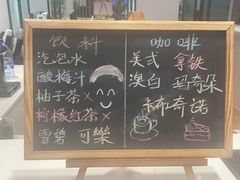 饮料
泡泡水
酸梅汁
柚子茶×
柠檬红茶×
雪碧 可樂
咖啡
美式 拿铁
澳白 玛奇朵
卡布奇诺